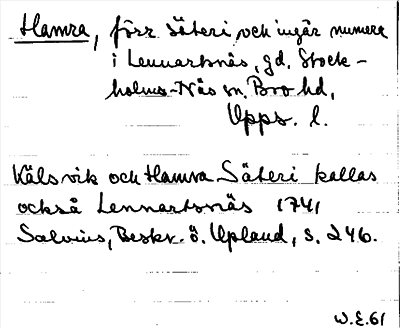 Hamra, förr säteri, och ingår numera
i Lennartsnäs, gd. Stock-
holms-Näs sn. Bro hd,
Upps. l.
Källsvik och Hamra Säteri kallas
också Lennartsnäs 1741
Salvius, Beskr. ö. Upland, s. 246.
W.E.61